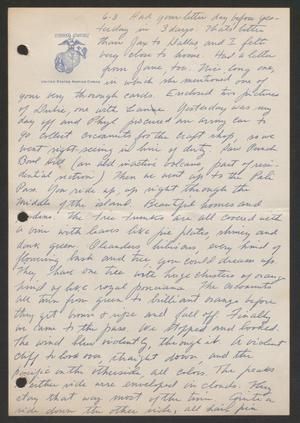 6-3 Had your letter day before yes-
terday in 3 days. That's better
than Jay to Dallas and I felt
very close to home. Had a letter
from Jane, too. Nice long one,
United States Marine Corps
in which she mentioned one of
your very thorough cards. Enclosed two pictures
of Dubie, one with Lanya. Yesterday was my
day off and Phyl procured an army car to
go collect coconuts for the craft shop, so we
went sight seeing in line of duty. Saw Punch
Bowl Hill (an old inactive volcano, part of resi-
dential section) Then we went up to the Pali
Pass. You ride up, up right through the
middle of the island. Beautiful homes and
gardens. The tree trunks are all covered with
a vine with leaves like pie plates, shiney and
dark green. Oleanders, hibiscus, every kind of
flowering bush and tree, you could dream up.
They have one tree with huge clusters of orange
kind of like royal poinciana. The coconuts
all turn from green to brilliant orange before
they get brown & ripe and fall off. Finally
we came to the pass. We stopped and looked.
The wind blew violently, through it. A violent
cliff to look over, straight down, and the
pacific on the otherside all colors. The peaks
either side were enveloped in clouds. They
stay that way most of the time. Quite a
ride down the other side, all hair pin